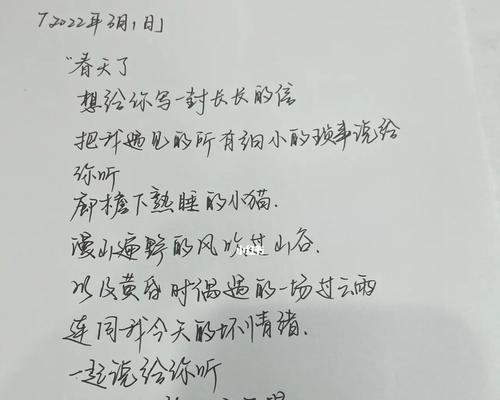 「2022年3月1日」
"春天了
想给你写一封长长的信
把我遇见的所有细小的琐事说给
你听
廊檐下熟睡的小猫.
漫山遍野的风吹过山谷.
以及黄昏时偶遇的一场过云雨
连同我今天的坏情绪.
一起说给你听